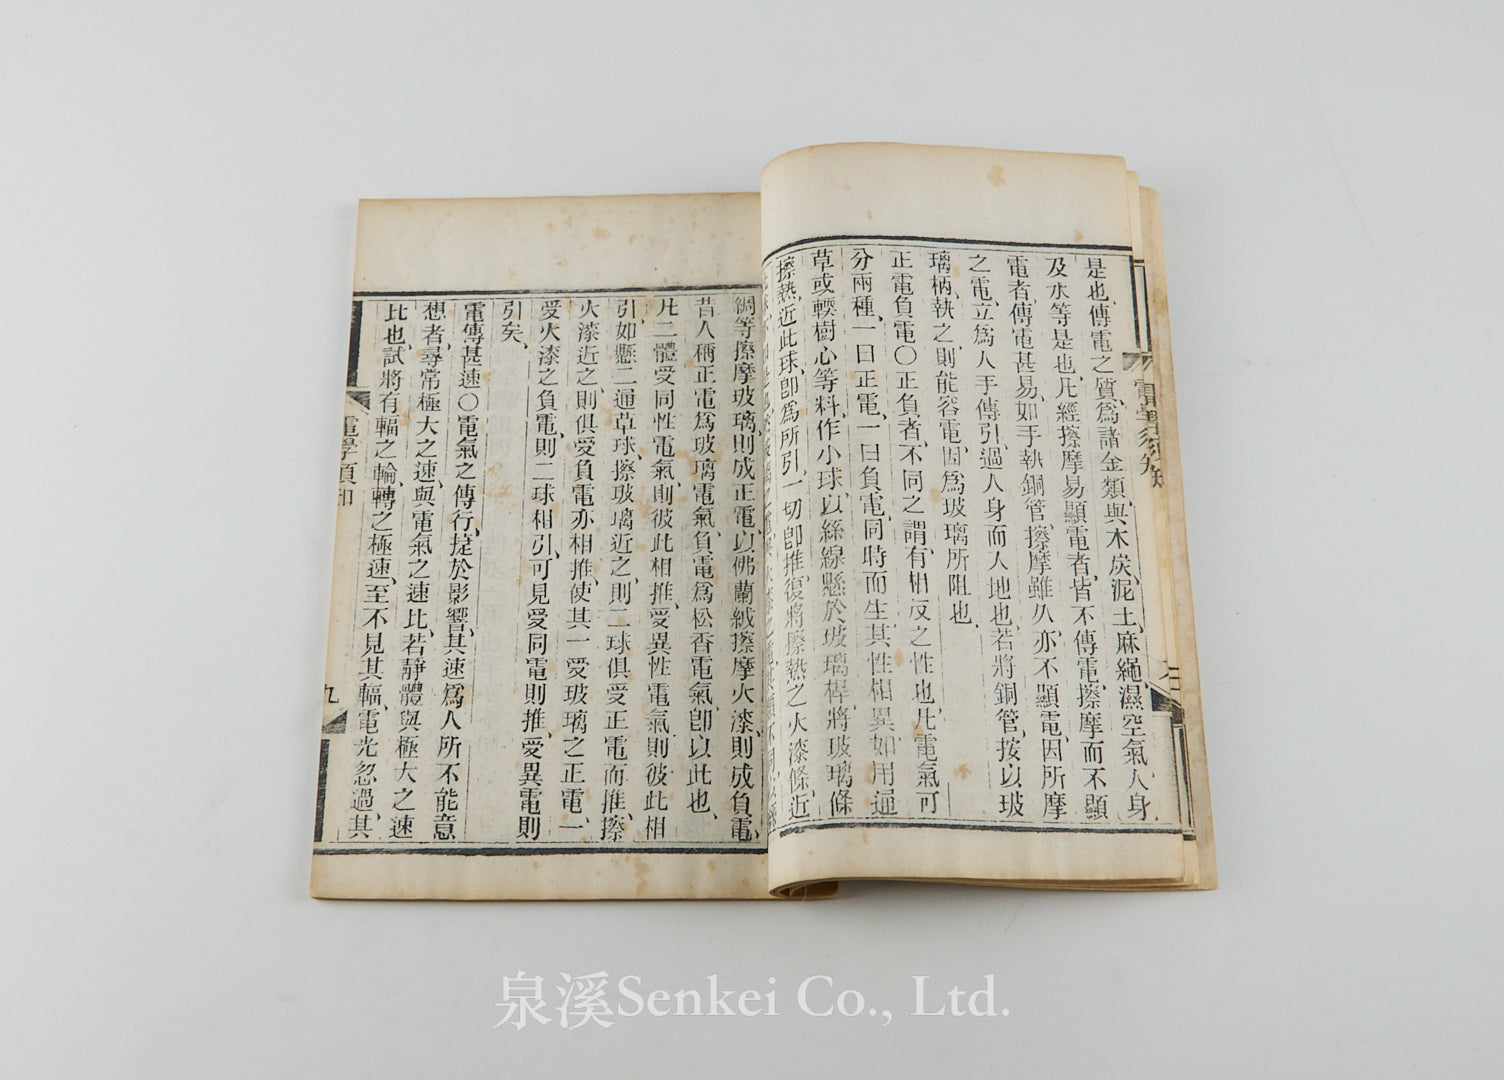 是也、傳電之質、爲諸金類、與木炭、泥土、麻繩、濕空氣、人身
及水等是也、凡經擦摩易顯電者、皆不傳電、擦摩而不顯
電者、傳電甚易、如手執銅管、擦摩雖久、亦不顯電、因所摩
之電、立爲人手傳引、過人身而入地也、若將銅管、按以玻
璃柄、執之則能容電、因爲玻璃所阻也、
正電負電〇正負者、不同之謂、有相反之性也、凡電氣可
分兩種、一曰正電、一曰負電、同時而生、其性相異、如用通
草或輭樹心等料、作小球、以絲線懸於玻璃桿、將玻璃條
擦熱、近此球、卽爲所引、一切卽推、復將擦熱之火漆條、近
綢等擦摩玻璃、則成正電、以佛蘭絨擦摩火漆、則成負電、
昔人稱正電爲玻璃電氣、負電爲松香電氣、卽以此也、
凡二體受同性電氣、則彼此相推、受異性電氣、則彼此相
引、如懸二通草球、擦玻璃近之、則二球俱受正電而推、擦
火漆近之、則俱受負電、亦相推、使其一受玻璃之正電、一
受火漆之負電、則二球相引、可見受同電則推、受異電則
引矣、
電傳甚速〇電氣之傳行、捷於影響、其速爲人所不能意
想者、尋常極大之速、與電氣之速比、若靜體與極大之速
比也、試將有輻之輪、轉之極速、至不見其輻、電光忽過、其
電學須知
九
電學須知
泉溪Senkei Co., Ltd.